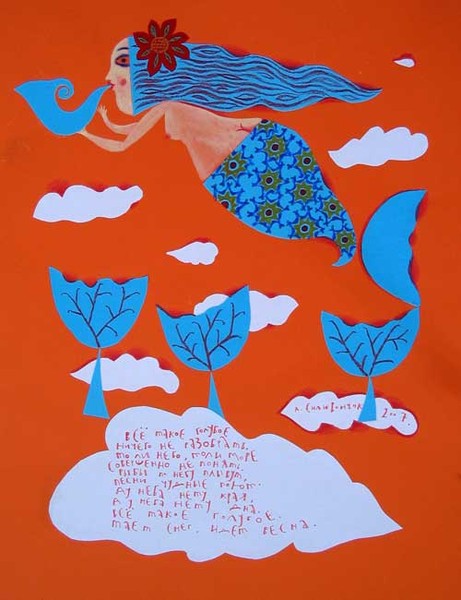 л. Силивончик 2007.
Всё такое голубое
ничего не разобрать.
то ли небо, то ли море
совершенно не понять.
рыбы по небу плывут,
песни чудные поют.
а у неба нету края,
а у неба нету дна.
всё такое голубое.
тает снег. идет весна.